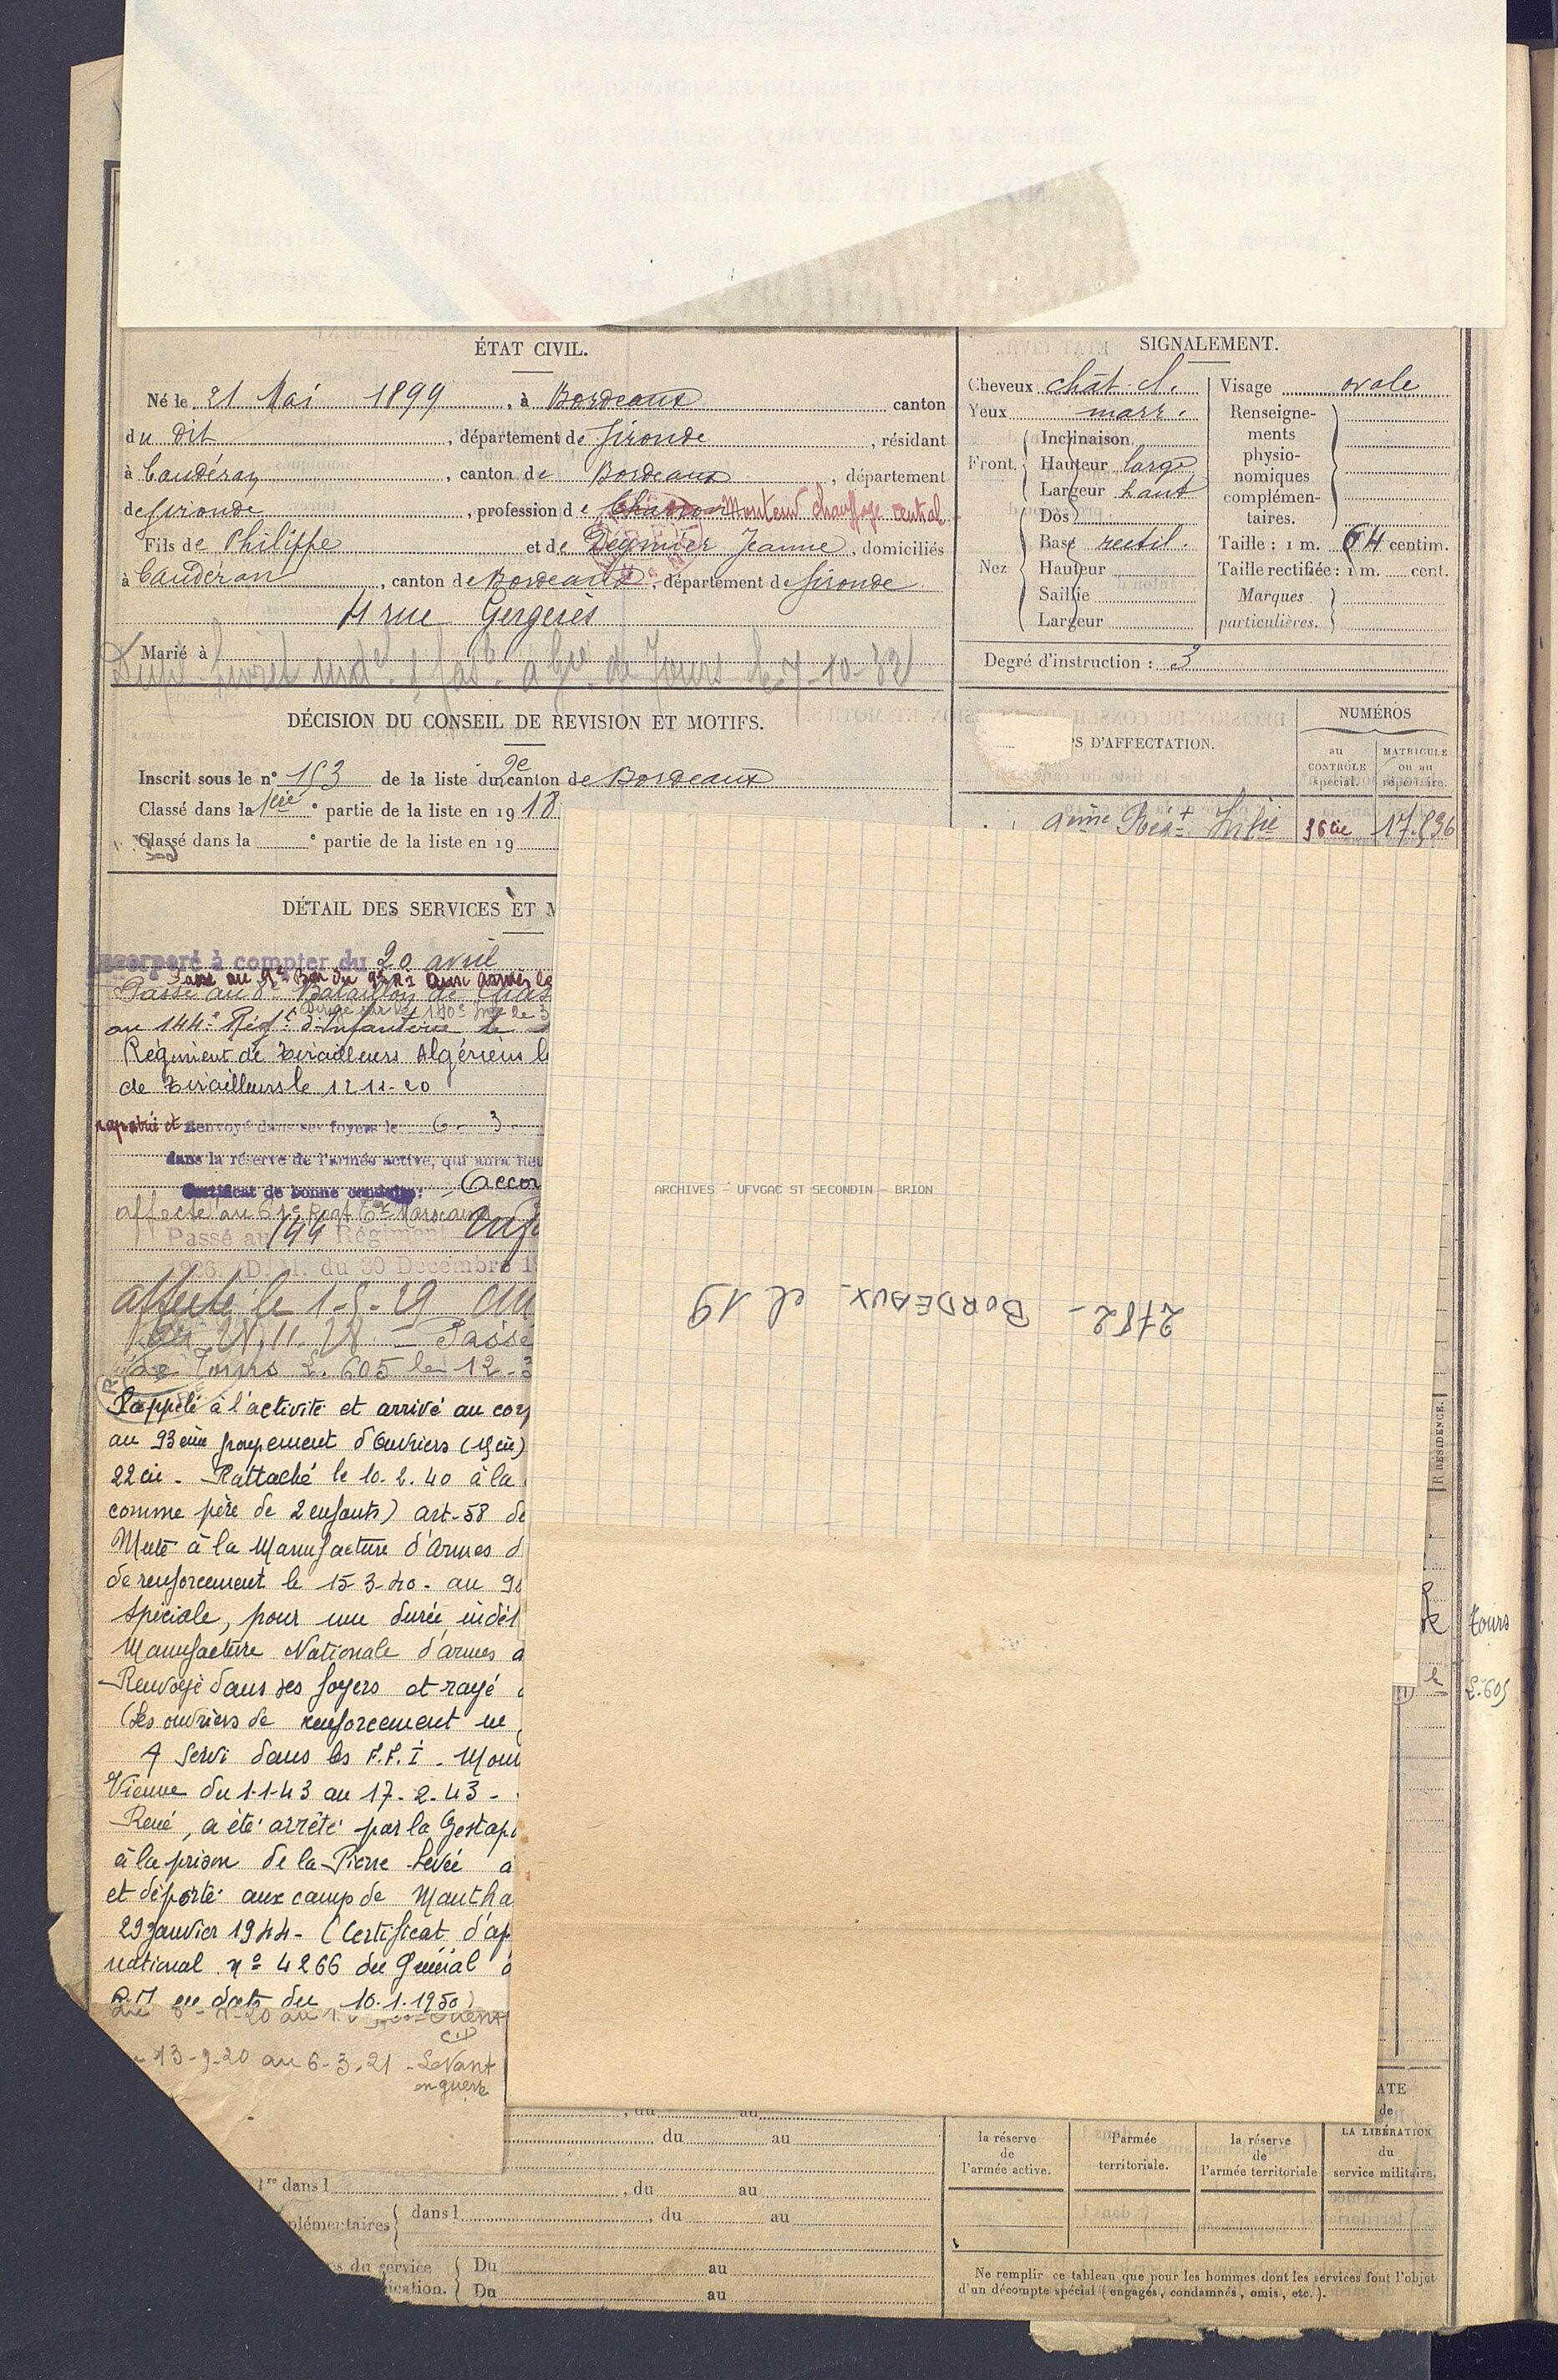 ÉTAT CIVIL.
Né le 21 Mai 1899, à Bordeaux canton
du dit, département de Gironde, résidant
à Caudéran, canton de Bordeaux, département
de Gironde, profession de Charron Monteur chauffage central
Fils de Philippe et de Jeanne, domiciliés
à Caudéran, canton de Bordeaux, département de Gironde
rue Gergerès
Marié à
à de Tours le 7-10-32
SIGNALEMENT.
Cheveux chât. cl.
Yeux marr.
Front. Inclinaison
Hauteur large
Largeur haut
Nez Dos
Base rectil.
Hauteur
Saillie
Largeur
Visage ovale
Renseigne-
ments
physio-
nomiques
complémen-
taires.
Taille : 1 m. 64 centim.
Taille rectifiée : 1 m. cent.
Marques
particulières.
Degré d'instruction : 3
DÉCISION DU CONSEIL DE REVISION ET MOTIFS.
Inscrit sous le n° 153 de la liste du 2e canton de Bordeaux
Classé dans la 1ère partie de la liste en 1918
Classé dans la e partie de la liste en 19
PS D'AFFECTATION.
NUMÉROS
au
CONTRÔLE
spécial.
MATRICULE
ou au
répertoire.
9ème Régt Inf
36 cie 17.536
DÉTAIL DES SERVICES ET M
Incorporé à compter du 20 avril
Passe au Bon du aux armées le
Passé au 8e Bataillon de Chas
Dirigé sur le
au 144e Régt d'Infanterie le
Régiment de Tirailleurs Algériens l
de Tirailleurs le 12 11-20
rapatrié et Renvoyé dans ses foyers le 6- 3
dans la réserve de l'armée active, qui aura lieu
Certificat de bonne conduite: Accor
affecté au 61e Regt Marocains
Passé au 144 Régiment Inf
1926. (D.M. du 30 Décembre 19
affecté le 1-5-29 au
28.11.28 - Passé
de Tours L. 605 le 12-3
Rappelé à l'activité et arrivé au corp
au 93ème groupement d'Ouvriers (
22 cie - Rattaché le 10-2.40 à la
comme père de 2 enfants) art-58 de
Muté à la Manufacture d'Armes d
de renforcement le 15-3-40- au 9
spéciale, pour une durée indét
Manufacture Nationale d'armes
Renvoyé dans ses foyers et rayé
(les ouvriers de renforcement ne
A servi dans les F.F.I - Mou
Vienne du 1-1-43 au 17-2-43 -
René, a été arrêté par la Gestapo
à la prison de la Pierre Levée à
et déporté aux camp de Mautha
29 Janvier 1944- (Certificat d'ap
national n° 4266 du Général
R.M en date du 10.1.1950)
13-9-20 au 6-3-21 - Levant
en guerre
ARCHIVES - UFVGAC ST SECONDIN - BRION
2782 - BORDEAUX cl 19
R RÉSIDENCE.
Tours
L.605
, du au
du au
re dans l , du au
plémentaires dans l , du au
s du service Du au
ication. Du au
la réserve
de
l'armée active.
l'armée
territoriale.
la réserve
de
l'armée territoriale
ATE
de
LA LIBÉRATION
du
service militaire.
Ne remplir ce tableau que pour les hommes dont les services font l'objet
d'un décompte spécial (engagés, condamnés, omis, etc.).